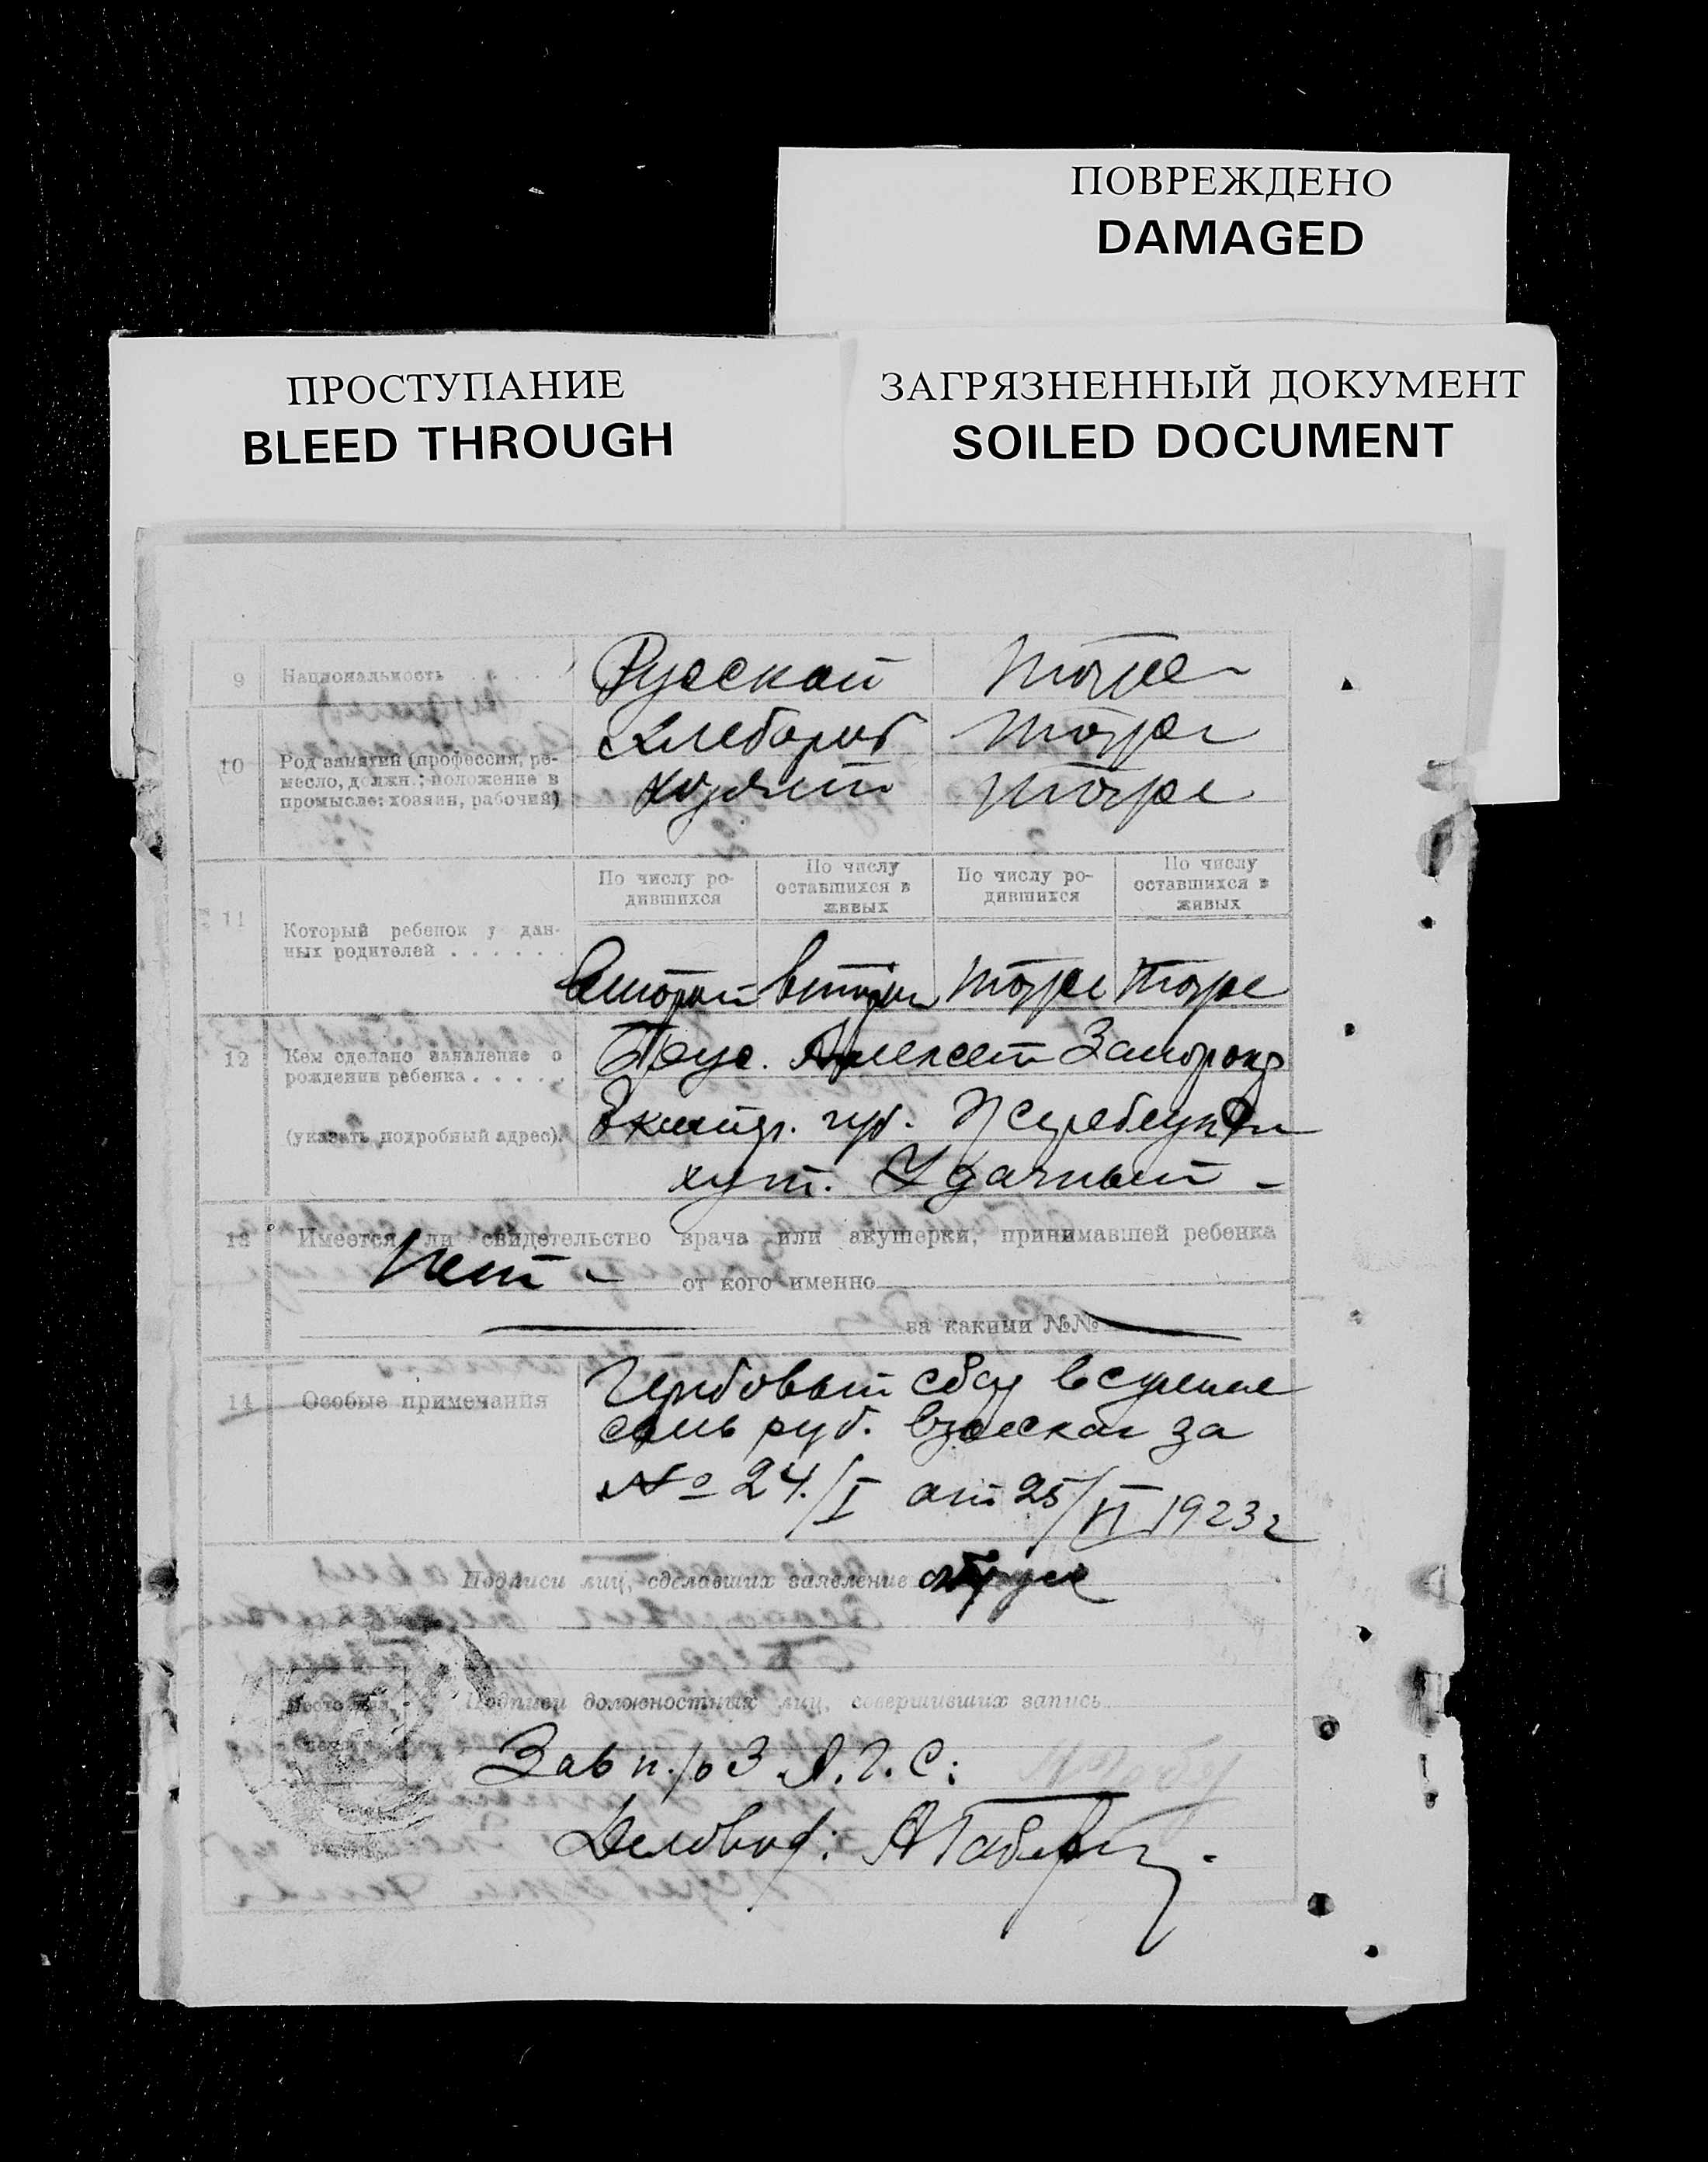 ПОВРЕЖДЕНО
DAMAGED
ПРОСТУПАНИЕ
BLEED THROUGH
ЗАГРЯЗНЕННЫЙ ДОКУМЕНТ
SOILED DOCUMENT
9 Национальность Русской тоже
10 Род занятий (профессия, ре-
месло, должн.; положение в
промысле: хозяин, рабочий)
Хлебороб тоже
тоже
По числу ро-
дившихся
По числу
оставшихся в
живых
По числу ро-
дившихся
По числу
оставшихся в
живых
11 Который ребенок у дан-
ных родителей
Второй второй тоже тоже
12 Кем сделано заявление о
рождении ребенка
(указать подробный адрес).
Алексей
губ.
хут. Удачный
13 Имеется ли свидетельство врача или акушерки, принимавшей ребенка
Нет - от кого именно
за какими №№
14 Особые примечания
Гербовый сбор в сумме
семь руб. взыскан за
№ 24/I от 25/VI 1923 г
Подписи лиц, сделавших заявление
Подписи должностных лиц, совершивших запись
Зав п/о З.А.Г.С:
Деловод: